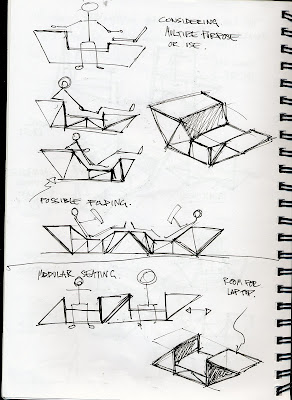 CONSIDERING
MULTIPLE PURPOSE
OR USE.
POSSIBLE FOLDING.
MODULAR SEATING.
ROOM FOR
LAPTOP.